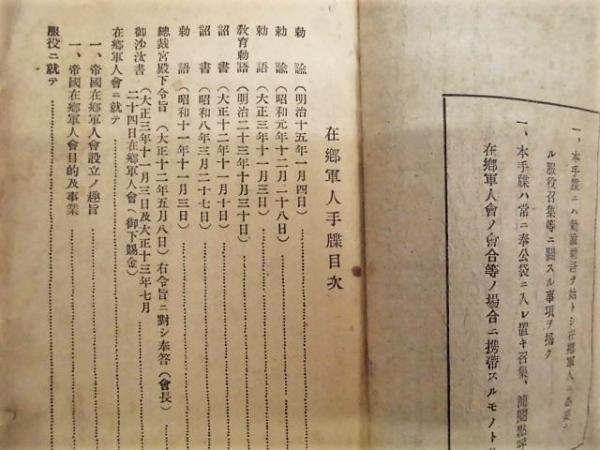 一、本手牒ニハ勅諭勅語ヲ始トシ在郷軍人ニ必要ナ
ル服役召集等ニ關スル事項ヲ揭ク
一、本手牒ハ常ニ奉公袋ニ入レ置キ召集、簡閲點呼
在郷軍人會ノ會合等ノ場合ニ携帶スルモノトス
在郷軍人手牒目次
勅諭(明治十五年一月四日)
勅語(昭和元年十二月二十八日)
勅語(大正三年十一月三日)
敎育勅語(明治二十三年十月三十日)
詔書(大正十二年十一月十日)
詔書(昭和八年三月二十七日)
勅語(昭和十一年十一月三日)
總裁宮殿下令旨(大正十二年五月八日)右令旨ニ對シ奉答(會長)
御沙汰書(大正三年十一月三日及大正十三年七月
二十四日在郷軍人會ヘ御下賜金)
在郷軍人會ニ就テ
一、帝國在郷軍人會設立ノ趣旨
一、帝國在郷軍人會目的及事業
服役ニ就テ